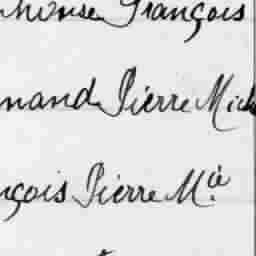 François
mand Pierre Mich
nçois Pierre Mie